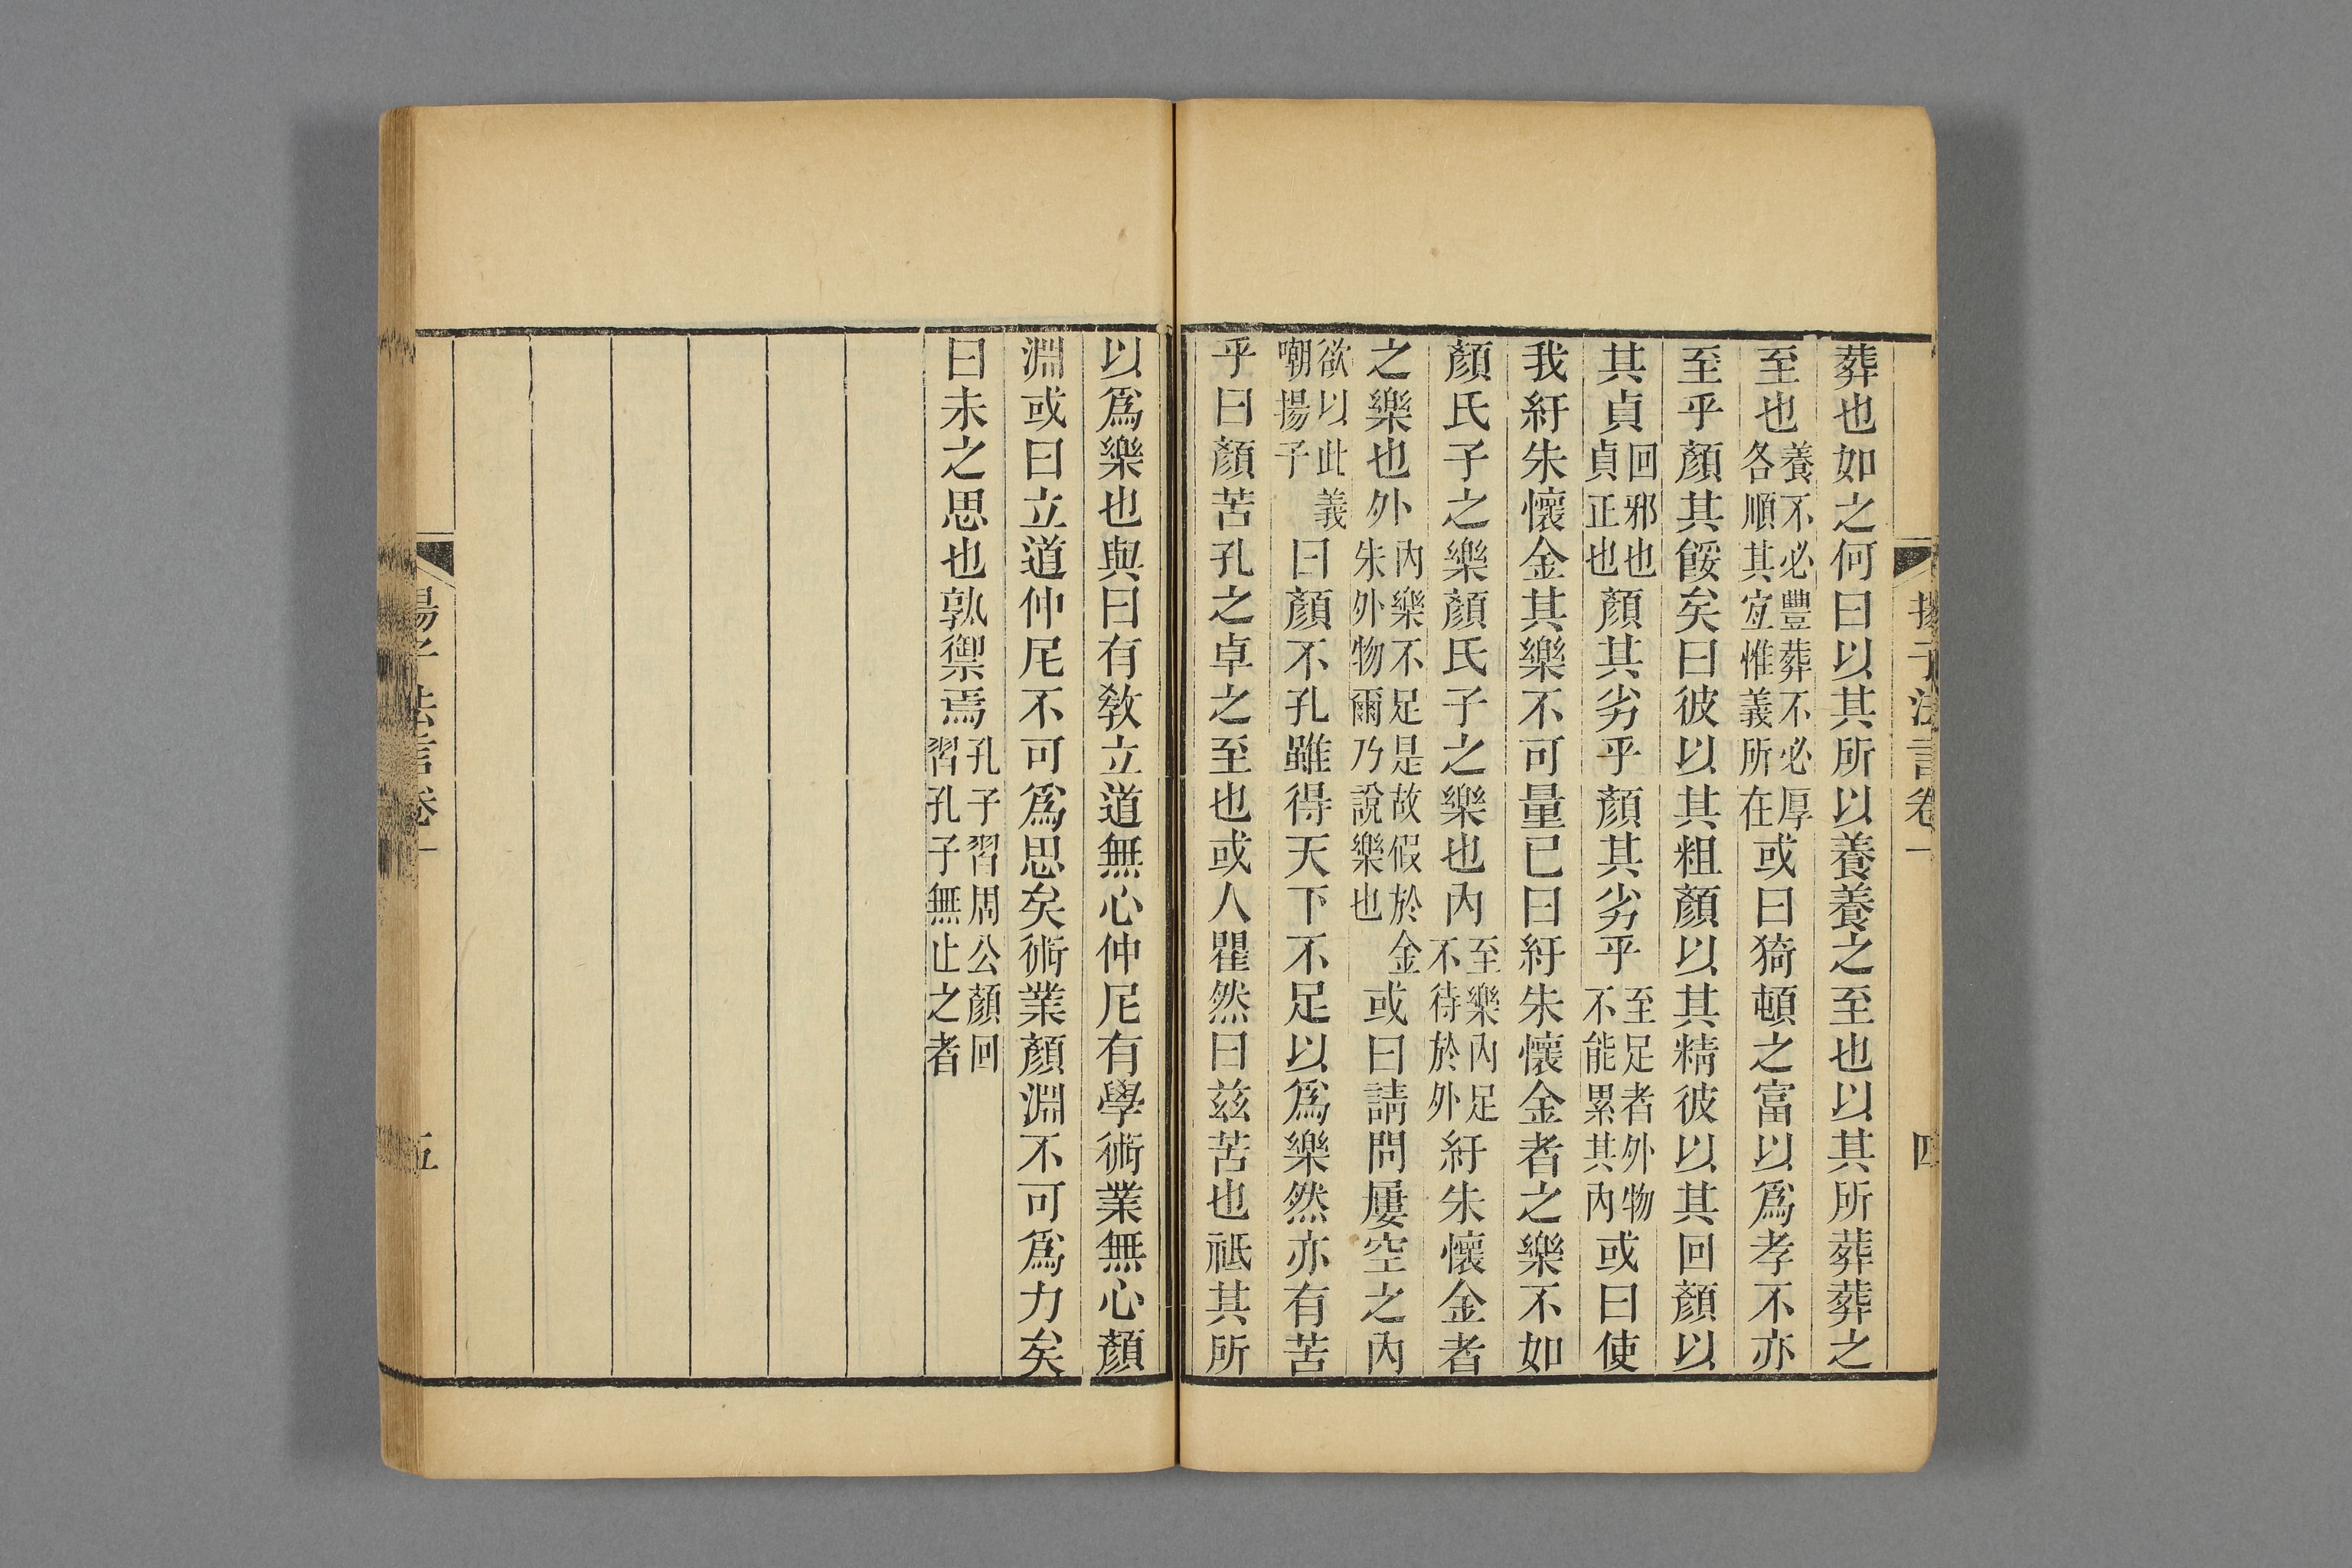 揚子法言卷一 四
葬也如之何曰以其所以養養之至也以其所葬葬之
至也養不必豐葬不必厚各順其宐惟義所在或曰猗頓之富以爲孝不亦
至乎顏其餒矣曰彼以其粗顏以其精彼以其回顏以
其貞回邪也貞正也顏其劣乎顏其劣乎至足者外物不能累其內或曰使
我紆朱懷金其樂不可量已曰紆朱懷金者之樂不如
顏氏子之樂顏氏子之樂也內至樂內足不待於外紆朱懷金者
之樂也外內樂不足是故假於金朱外物爾乃說樂也或曰請問屢空之內
欲以此義嘲揚子曰顏不孔雖得天下不足以爲樂然亦有苦
乎曰顏苦孔之卓之至也或人瞿然曰兹苦也祗其所
以爲樂也與曰有敎立道無心仲尼有學術業無心顏
淵或曰立道仲尼不可爲思矣術業顏淵不可爲力矣
曰未之思也孰禦焉孔子習周公顏回習孔子無止之者
揚子法言卷一 五